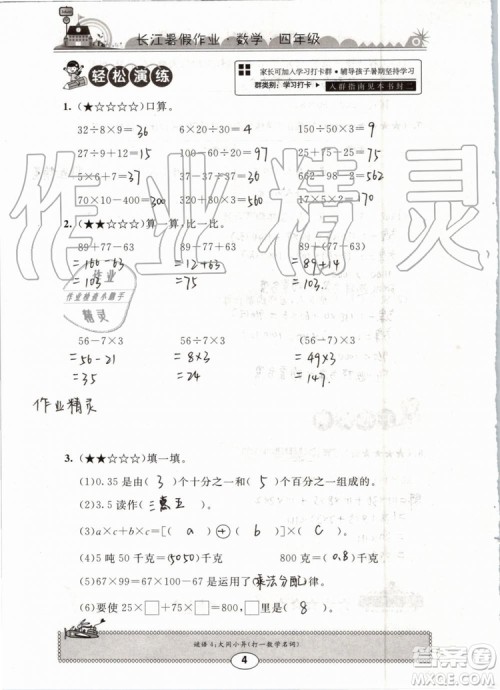 长江暑假作业·数学·四年级
轻松演练
家长可加入学习打卡群·辅导孩子暑期坚持学习
群类别：学习打卡 入群指南见本书封二
1. (★☆☆☆☆)口算。
32÷8×9=36 6×20÷30=4 150÷50×3=9
27÷9+12=15 10-60÷20=97 25+75-25=75
5×6+7=37 7÷37=37 662-98-2=562
70×10-400=300 320+80×3=560 17×5×2=170
2. (★★☆☆☆)算一算,比一比。
89+77-63 89÷77-63 89+(77-63)
=166-63 =12+63 =89+14
=103 =75 =103.
56-7×3 56÷7×3 (56-7)×3
=56-21 =8×3 =49×3
=35 =24 =147.
作业精灵
3. (★★☆☆☆)填一填。
(1)0.35是由( 3 )个十分之一和( 5 )个百分之一组成的。
(2)3.5读作(三点五)。
(3)a×c+b×c=[( a )+( b )]×( c )。
(4)5吨50千克=(5050)千克 800克=(0.8)千克
(5)67×99+67=67×100是运用了(乘法分配)律。
(6)要使25×□+75×□=800,□里是( 8 )。
谜语4:大同小异(打一数学名词)
4
作业精灵
作业
作业检查小助手
精灵